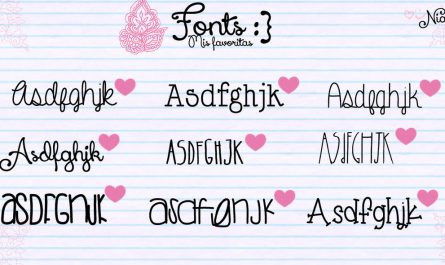 Fonts :}
Mis favoritas
Asdfghjk Asdfghjk Asdfghjk
Asdfghjk ASDFGHJK ASDFGHJK
ASDFGHJK asdfghjk Asdfghjk